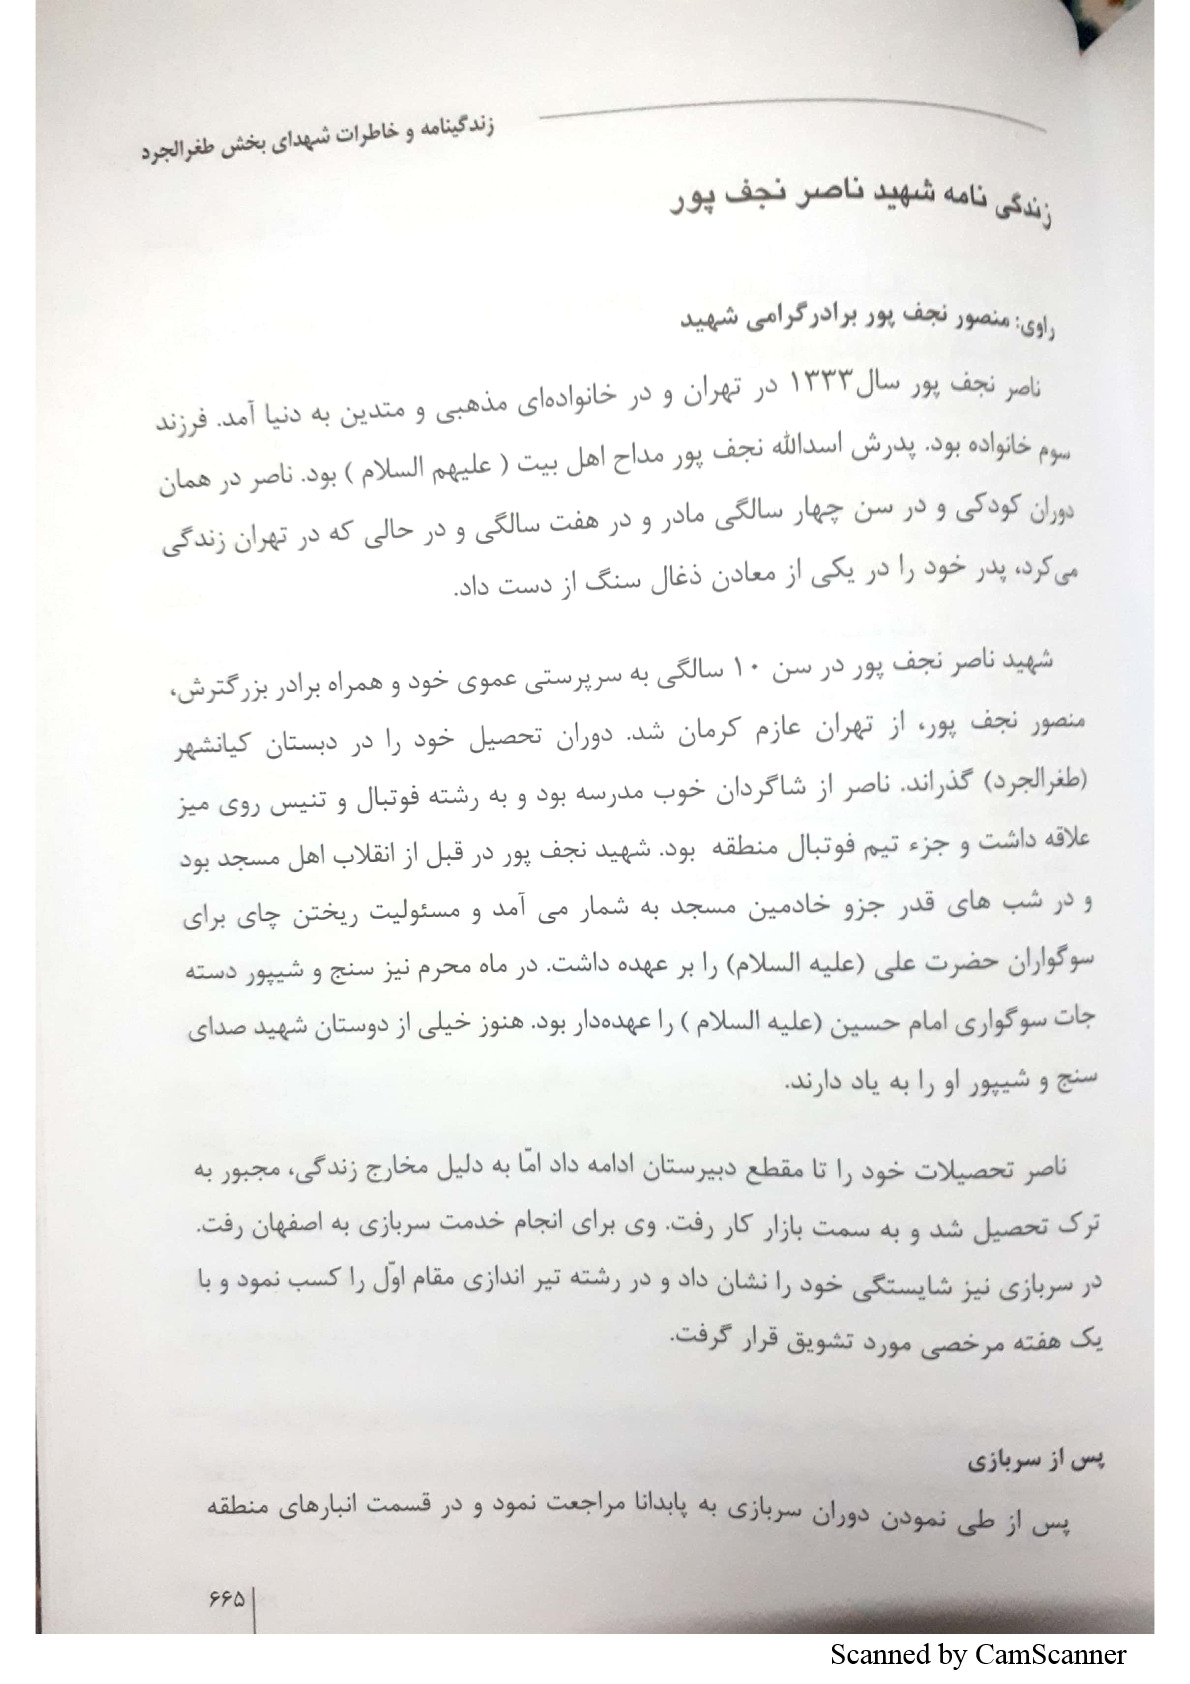 زندگینامه و خاطرات شهدای بخش طغرالجرد
زندگی نامه شهید ناصر نجف پور
راوی: منصور نجف پور برادر گرامی شهید
ناصر نجف پور سال۱۳۳۳ در تهران و در خانواده‌ای مذهبی و متدین به دنیا آمد. فرزند
سوم خانواده بود. پدرش اسدالله نجف پور مداح اهل بیت ( علیهم السلام ) بود. ناصر در همان
دوران کودکی و در سن چهار سالگی مادر و در هفت سالگی و در حالی که در تهران زندگی
می‌کرد، پدر خود را در یکی از معادن ذغال سنگ از دست داد.
شهید ناصر نجف پور در سن ۱۰ سالگی به سرپرستی عموی خود و همراه برادر بزرگترش،
منصور نجف پور، از تهران عازم کرمان شد. دوران تحصیل خود را در دبستان کیانشهر
(طغرالجرد) گذراند. ناصر از شاگردان خوب مدرسه بود و به رشته فوتبال و تنیس روی میز
علاقه داشت و جزء تیم فوتبال منطقه بود. شهید نجف پور در قبل از انقلاب اهل مسجد بود
و در شب های قدر جزو خادمین مسجد به شمار می آمد و مسئولیت ریختن چای برای
سوگواران حضرت علی (علیه السلام) را بر عهده داشت. در ماه محرم نیز سنج و شیپور دسته
جات سوگواری امام حسین (علیه السلام ) را عهده‌دار بود. هنوز خیلی از دوستان شهید صدای
سنج و شیپور او را به یاد دارند.
ناصر تحصیلات خود را تا مقطع دبیرستان ادامه داد امّا به دلیل مخارج زندگی، مجبور به
ترک تحصیل شد و به سمت بازار کار رفت. وی برای انجام خدمت سربازی به اصفهان رفت.
در سربازی نیز شایستگی خود را نشان داد و در رشته تیر اندازی مقام اوّل را کسب نمود و با
یک هفته مرخصی مورد تشویق قرار گرفت.
پس از سربازی
پس از طی نمودن دوران سربازی به پابدانا مراجعت نمود و در قسمت انبارهای منطقه
۶۶۵
Scanned by CamScanner